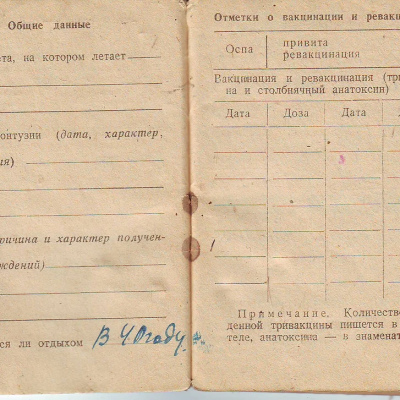 Общие данные
ета, на котором летает
онтузии (дата, характер,
ия)
ричина и характер получен-
ждений)
ся ли отдыхом В
Отметки о вакцинации и ревакц
Оспа
привита
ревакцинация
Вакцинация и ревакцинация (три
на и столбнячный анатоксин)
Дата Доза Дата
Примечание. Количество
денной тривакцины пишется в
теле, анатоксина — в знаменат